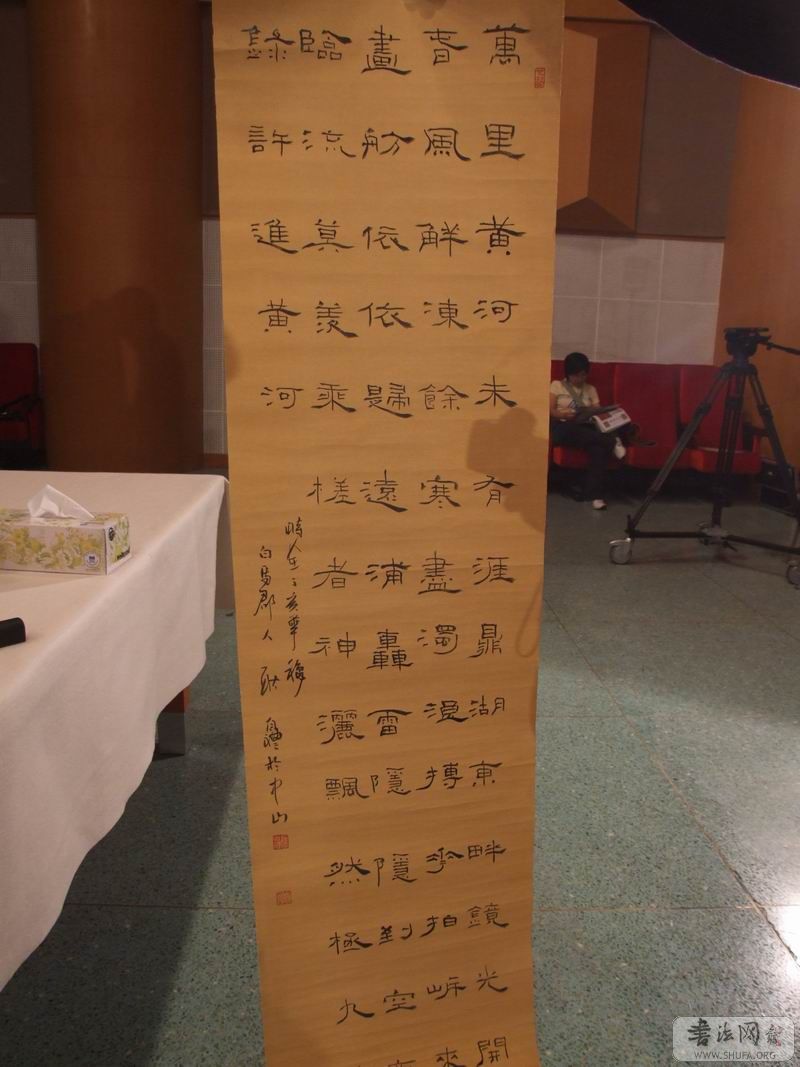 萬里黃河未有涯鼎湖東畔鏡光開
春風解凍餘寒盡濁浪搏花拍岍來
畫舫依依歸遠浦轟雷隱隱到空
臨流莫羨乘槎者神灑飄然極九
錄許進黃河
時人生
白易郡人 耿 於中山
書法网
WWW.SHUFA.ORG